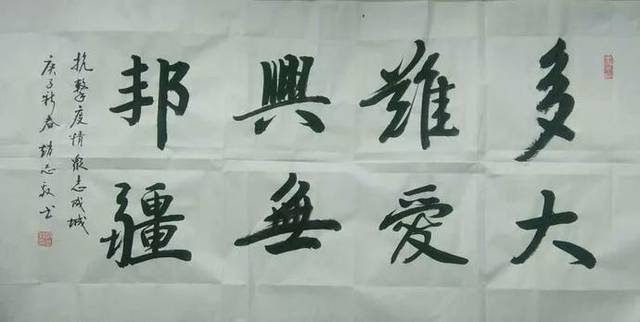 多難興邦
大愛無疆
抗擊疫情衆志成城
庚子新春